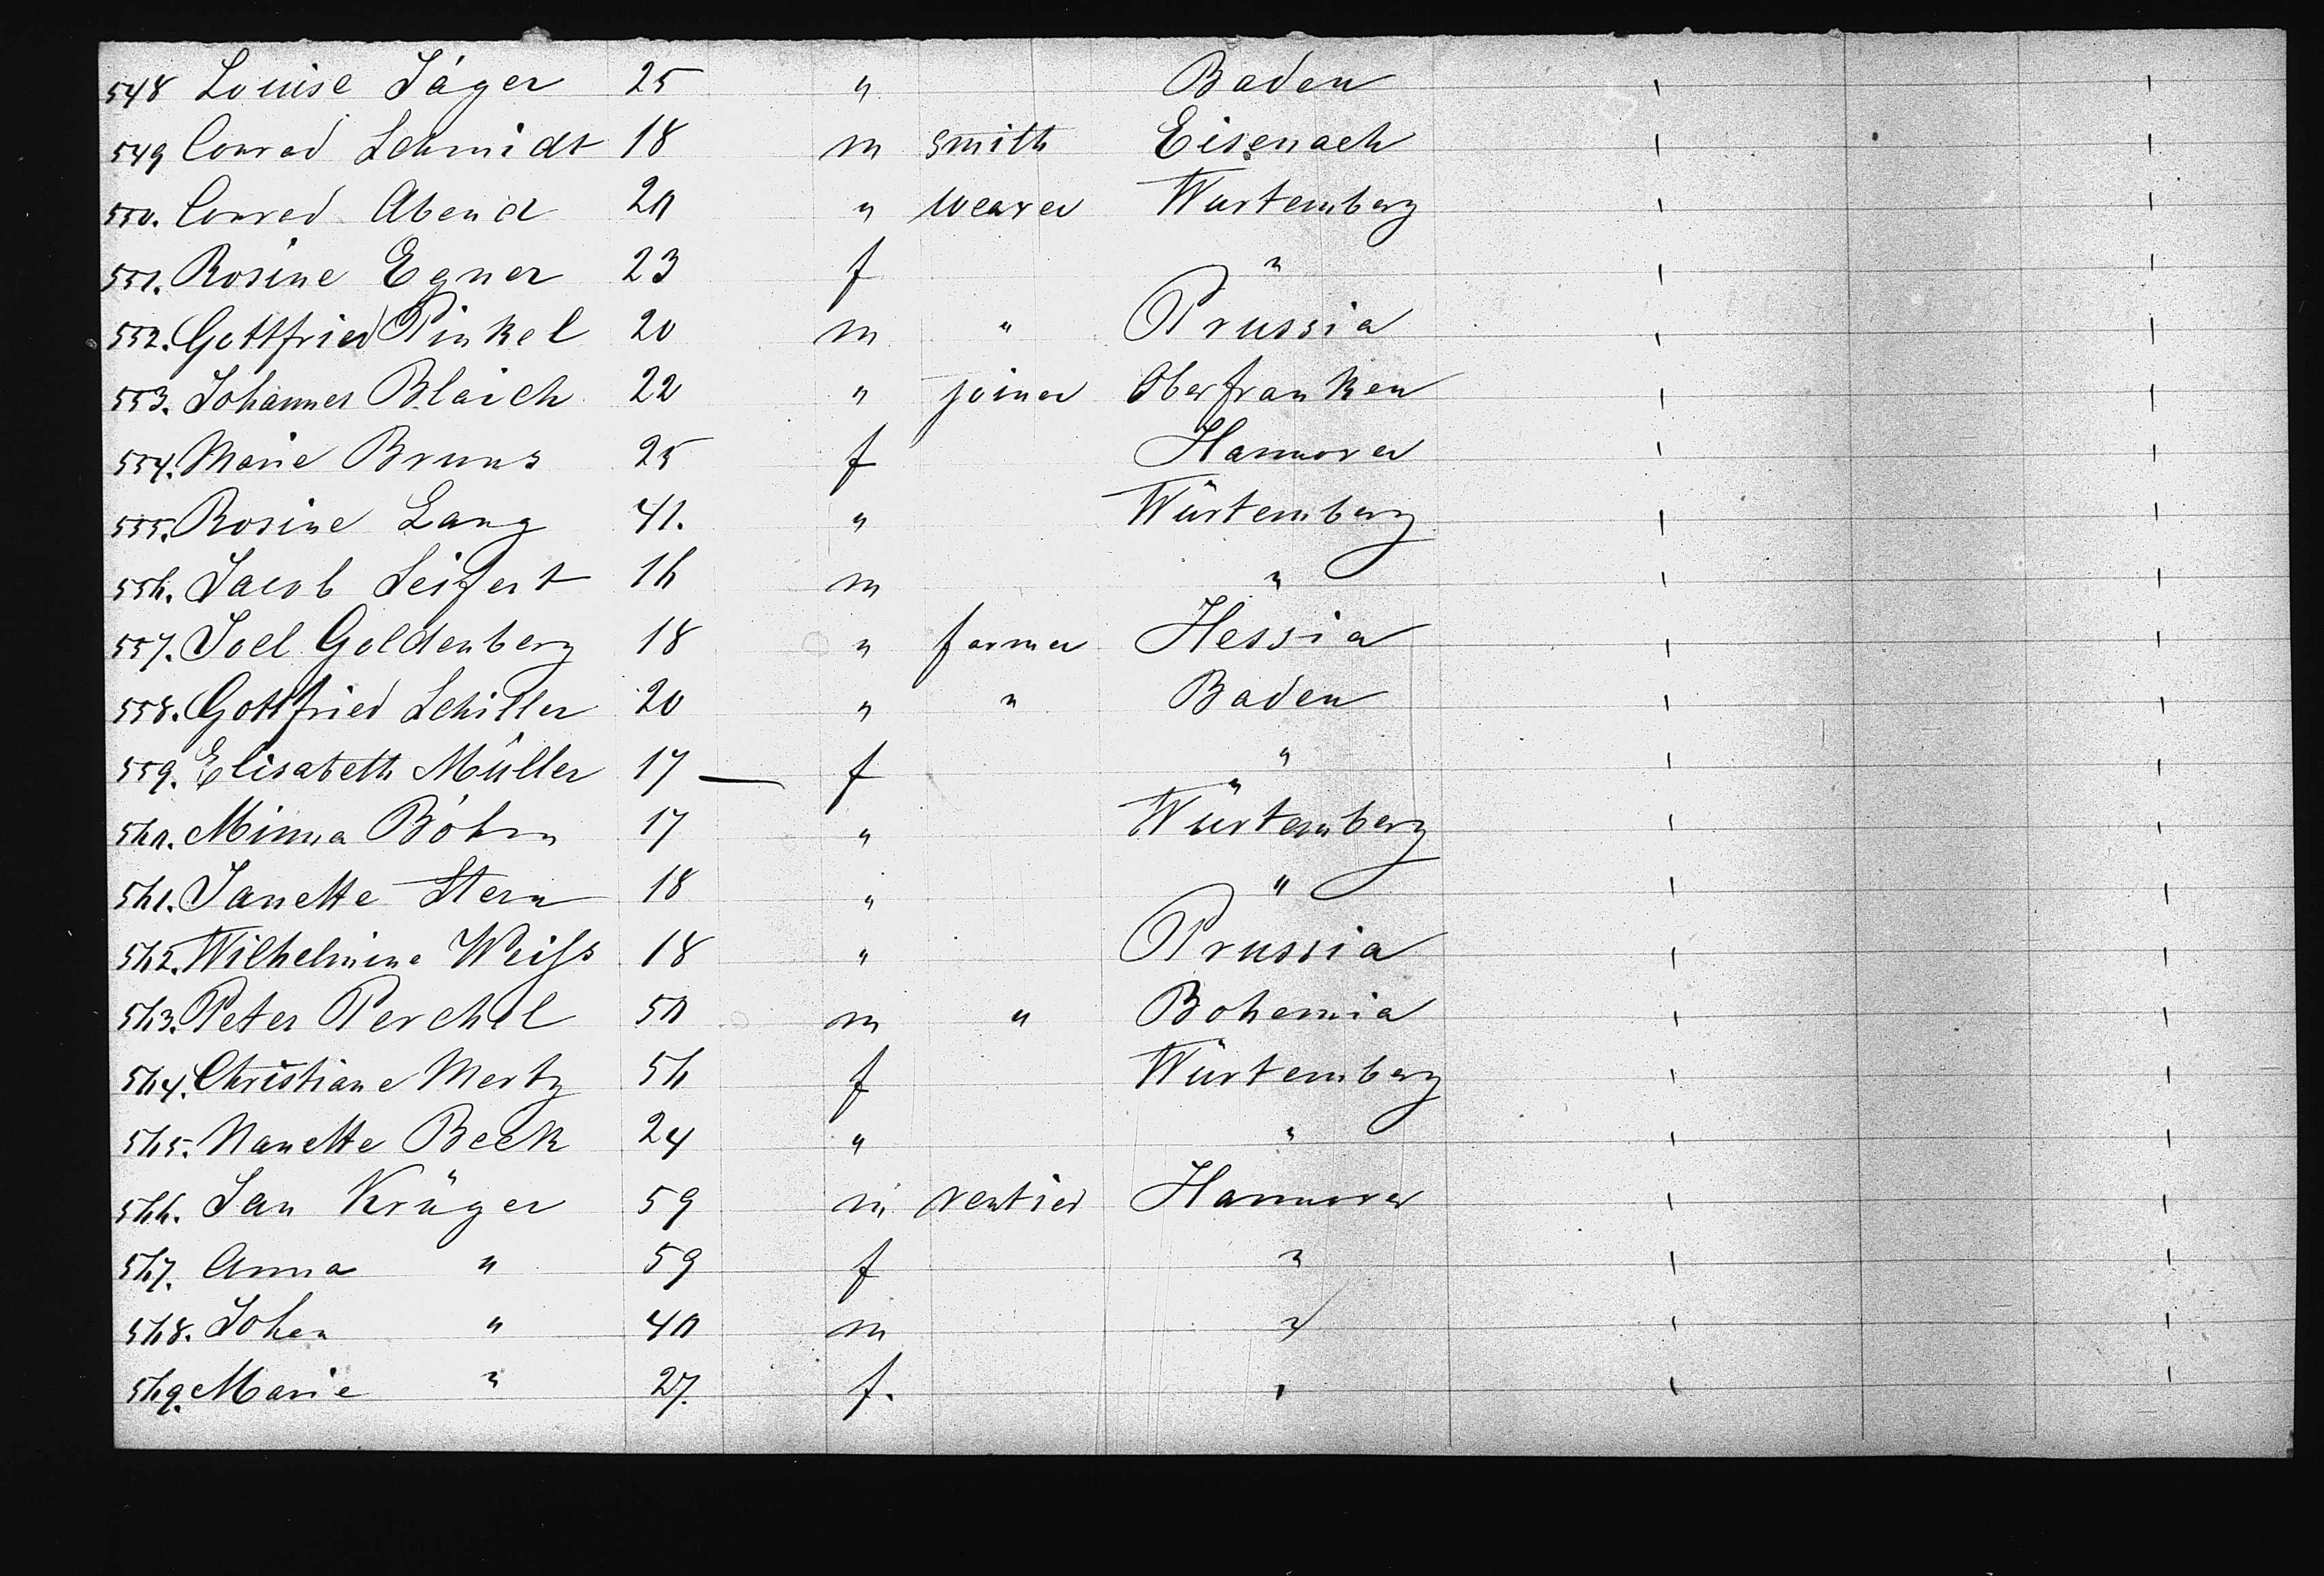 548 Louise Jäger 25 " Baden
549 Conrad Schmidt 18 m smith Eisenach
550. Conrad Abend 20 " weaver Würtemberg
551. Rosine Egner 23 f "
552. Gottfried Pinkel 20 m " Prussia
553. Johannes Blaich 22 " joiner Oberfranken
554. Marie Bruns 25 f Hannover
555. Rosine Lang 41. " Würtemberg
556. Jacob Seifert 16 m "
557. Joel Goldenberg 18 " farmer Hessia
558. Gottfried Schiller 20 " " Baden
559. Elisabeth Müller 17 — f "
560. Minna Böhm 17 " Würtemberg
561. Janette Stern 18 " "
562. Wilhelmine Weiss 18 " Prussia
563. Peter Perchel 50 m " Bohemia
564. Christiane Mertz 56 f Würtemberg
565. Nanette Beck 24 " "
566. Jan Krüger 59 m rentier Hannover
567. Anna " 59 f "
568. Johan " 40 m "
569. Marie " 27. f. "